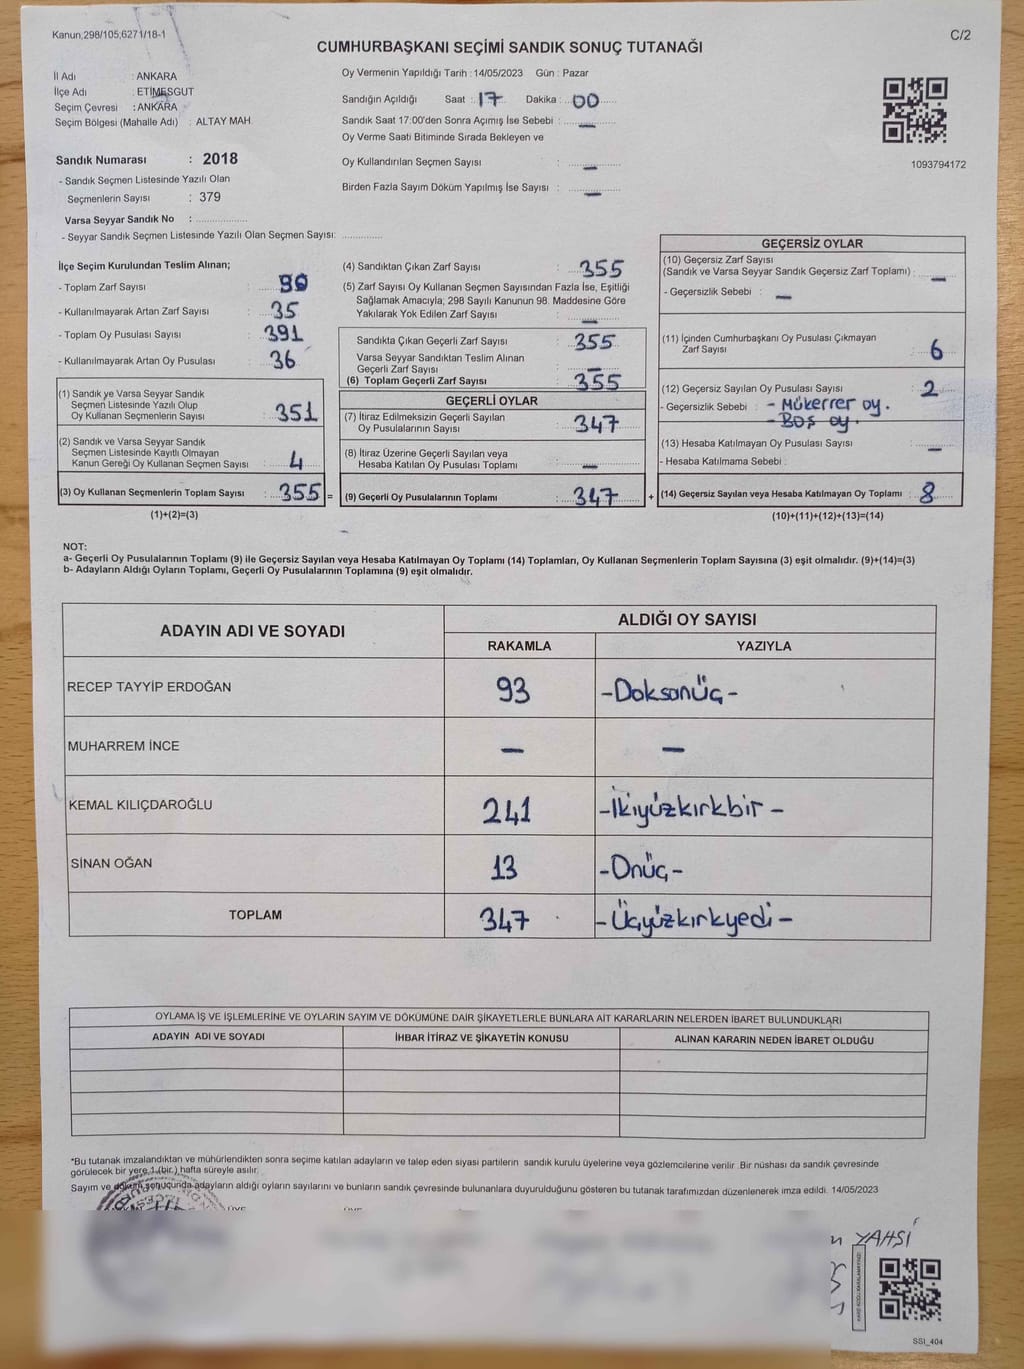 Kanun;298/105,6271/18-1
C/2
CUMHURBAŞKANI SEÇİMİ SANDIK SONUÇ TUTANAĞI
İl Adı : ANKARA
İlçe Adı : ETİMESGUT
Seçim Çevresi : ANKARA
Seçim Bölgesi (Mahalle Adı) : ALTAY MAH.
Sandık Numarası : 2018
- Sandık Seçmen Listesinde Yazılı Olan
Seçmenlerin Sayısı : 379
Varsa Seyyar Sandık No : ..................
- Seyyar Sandık Seçmen Listesinde Yazılı Olan Seçmen Sayısı: ..............
Oy Vermenin Yapıldığı Tarih : 14/05/2023 Gün : Pazar
Sandığın Açıldığı Saat : 17 Dakika : 00
Sandık Saat 17:00'den Sonra Açımış İse Sebebi : —
Oy Verme Saati Bitiminde Sırada Bekleyen ve
Oy Kullandırılan Seçmen Sayısı : —
Birden Fazla Sayım Döküm Yapılmış İse Sayısı : —
1093794172
İlçe Seçim Kurulundan Teslim Alınan;
- Toplam Zarf Sayısı :
- Kullanılmayarak Artan Zarf Sayısı : 35
- Toplam Oy Pusulası Sayısı : 391
- Kullanılmayarak Artan Oy Pusulası : 36
(1) Sandık ve Varsa Seyyar Sandık
Seçmen Listesinde Yazılı Olup
Oy Kullanan Seçmenlerin Sayısı : 351
(2) Sandık ve Varsa Seyyar Sandık
Seçmen Listesinde Kayıtlı Olmayan
Kanun Gereği Oy Kullanan Seçmen Sayısı : 4
(3) Oy Kullanan Seçmenlerin Toplam Sayısı : 355 =
(1)+(2)=(3)
(4) Sandıktan Çıkan Zarf Sayısı : 355
(5) Zarf Sayısı Oy Kullanan Seçmen Sayısından Fazla İse, Eşitliği
Sağlamak Amacıyla; 298 Sayılı Kanunun 98. Maddesine Göre
Yakılarak Yok Edilen Zarf Sayısı : —
Sandıkta Çıkan Geçerli Zarf Sayısı : 355
Varsa Seyyar Sandıktan Teslim Alınan
Geçerli Zarf Sayısı : —
(6) Toplam Geçerli Zarf Sayısı : 355
GEÇERLİ OYLAR
(7) İtiraz Edilmeksizin Geçerli Sayılan
Oy Pusulalarının Sayısı : 347
(8) İtiraz Üzerine Geçerli Sayılan veya
Hesaba Katılan Oy Pusulası Toplamı : —
(9) Geçerli Oy Pusulalarının Toplamı : 347 +
GEÇERSİZ OYLAR
(10) Geçersiz Zarf Sayısı
(Sandık ve Varsa Seyyar Sandık Geçersiz Zarf Toplamı) : —
- Geçersizlik Sebebi : —
(11) İçinden Cumhurbaşkanı Oy Pusulası Çıkmayan
Zarf Sayısı : 6
(12) Geçersiz Sayılan Oy Pusulası Sayısı : 2
- Geçersizlik Sebebi : - Mükerrer oy.
- Boş oy.
(13) Hesaba Katılmayan Oy Pusulası Sayısı : —
- Hesaba Katılmama Sebebi :
(14) Geçersiz Sayılan veya Hesaba Katılmayan Oy Toplamı : 8
(10)+(11)+(12)+(13)=(14)
NOT:
a- Geçerli Oy Pusulalarının Toplamı (9) ile Geçersiz Sayılan veya Hesaba Katılmayan Oy Toplamı (14) Toplamları, Oy Kullanan Seçmenlerin Toplam Sayısına (3) eşit olmalıdır. (9)+(14)=(3)
b- Adayların Aldığı Oyların Toplamı, Geçerli Oy Pusulalarının Toplamına (9) eşit olmalıdır.
ADAYIN ADI VE SOYADI ALDIĞI OY SAYISI
RAKAMLA YAZIYLA
RECEP TAYYİP ERDOĞAN 93 -Doksanüç-
MUHARREM İNCE — —
KEMAL KILIÇDAROĞLU 241 -İkiyüzkırkbir-
SİNAN OĞAN 13 -Onüç-
TOPLAM 347 -Üçyüzkırkyedi-
OYLAMA İŞ VE İŞLEMLERİNE VE OYLARIN SAYIM VE DÖKÜMÜNE DAİR ŞİKAYETLERLE BUNLARA AİT KARARLARIN NELERDEN İBARET BULUNDUKLARI
ADAYIN ADI VE SOYADI İHBAR İTİRAZ VE ŞİKAYETİN KONUSU ALINAN KARARIN NEDEN İBARET OLDUĞU
*Bu tutanak imzalandıktan ve mühürlendikten sonra seçime katılan adayların ve talep eden siyasi partilerin sandık kurulu üyelerine veya gözlemcilerine verilir. Bir nüshası da sandık çevresinde
görülecek bir yere 1 (bir) hafta süreyle asılır.
Sayım ve döküm sonuçunda adayların aldığı oyların sayılarını ve bunların sandık çevresinde bulunanlara duyurulduğunu gösteren bu tutanak tarafımızdan düzenlenerek imza edildi. 14/05/2023
YAHŞİ
SSİ_404